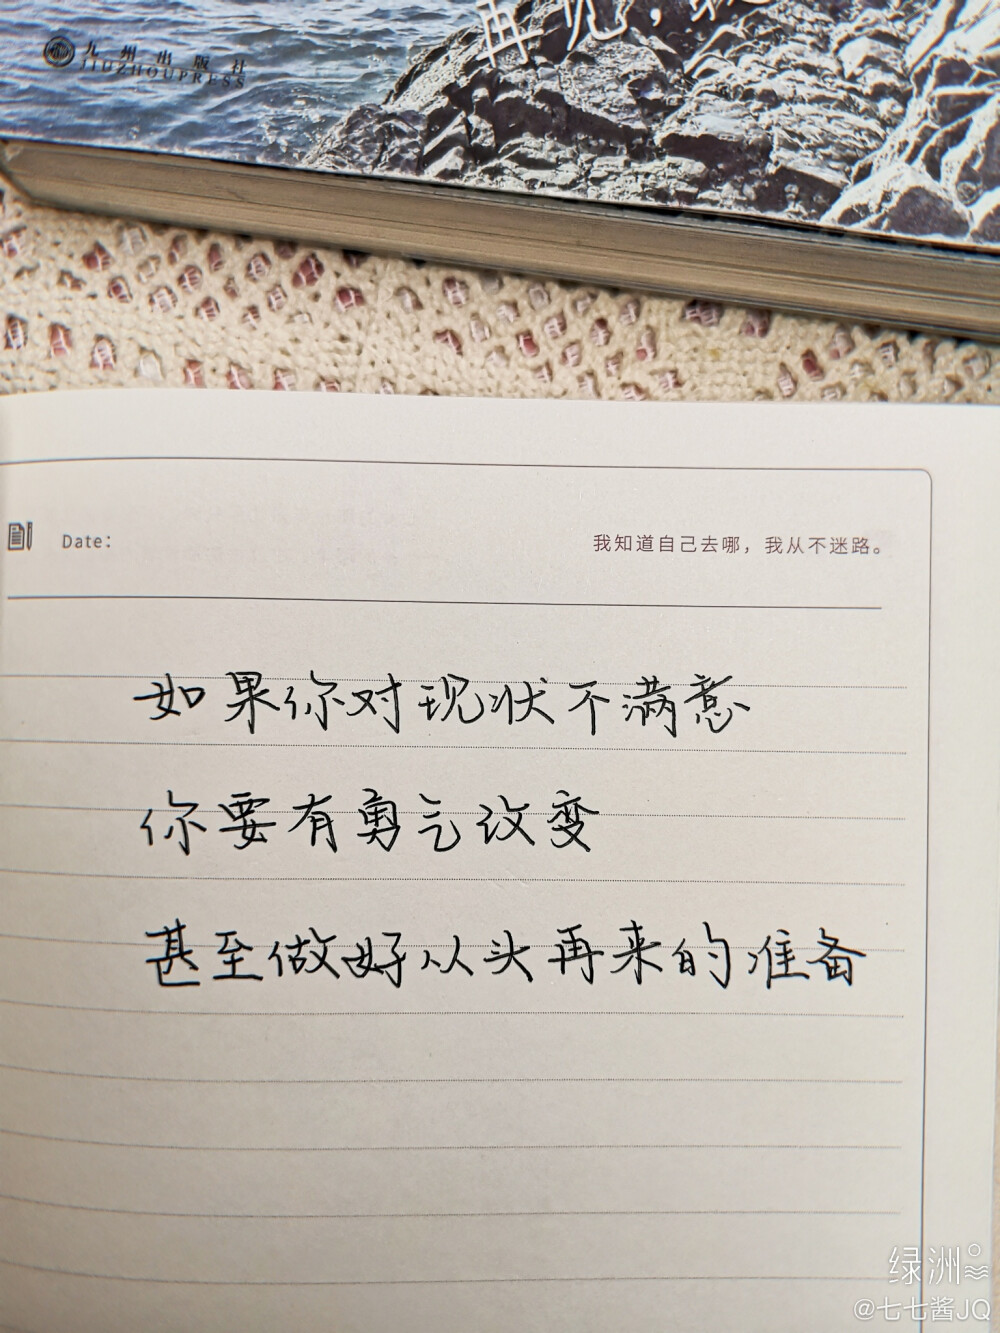 九州出版社
JIUZHOUPRESS
再见，
Date：
我知道自己去哪，我从不迷路。
如果你对现状不满意
你要有勇气改变
甚至做好从头再来的准备
绿洲
@七七酱JQ